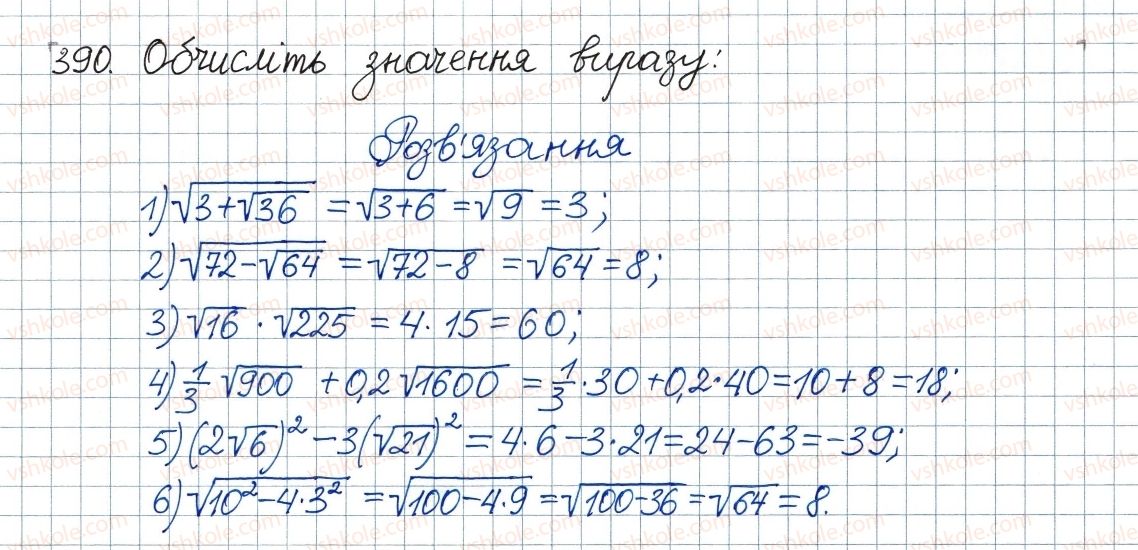 390. Обчисліть значення виразу:
Розв'язання
1) √(3+√36) = √(3+6) = √9 = 3;
2) √(72-√64) = √(72-8) = √64 = 8;
3) √16 · √225 = 4 · 15 = 60;
4) 1/3 √900 + 0,2 √1600 = 1/3 · 30 + 0,2 · 40 = 10 + 8 = 18;
5) (2√6)² - 3(√21)² = 4 · 6 - 3 · 21 = 24 - 63 = -39;
6) √(10² - 4 · 3²) = √(100 - 4 · 9) = √(100 - 36) = √64 = 8.